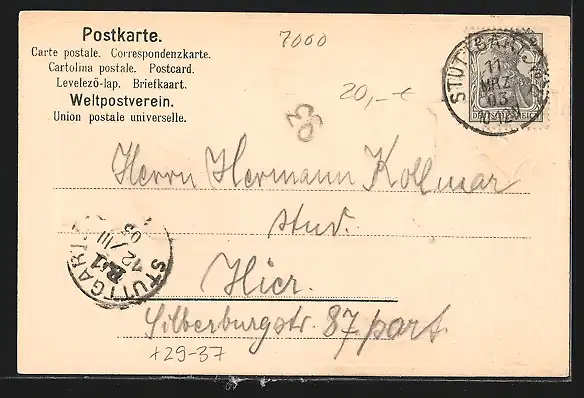 Postkarte.
Carte postale. Correspondenzkarte.
Cartolina postale. Postcard.
Levelező-lap. Briefkaart.
Weltpostverein.
Union postale universelle.
7000
20,-€
STUTTGART
11
MRZ
03
DEUTSCHES REICH
Herrn Hermann Kollmar
stud.
Hier.
Silberburgstr. 87. part.
STUTTGART
12/III
03
+29-37